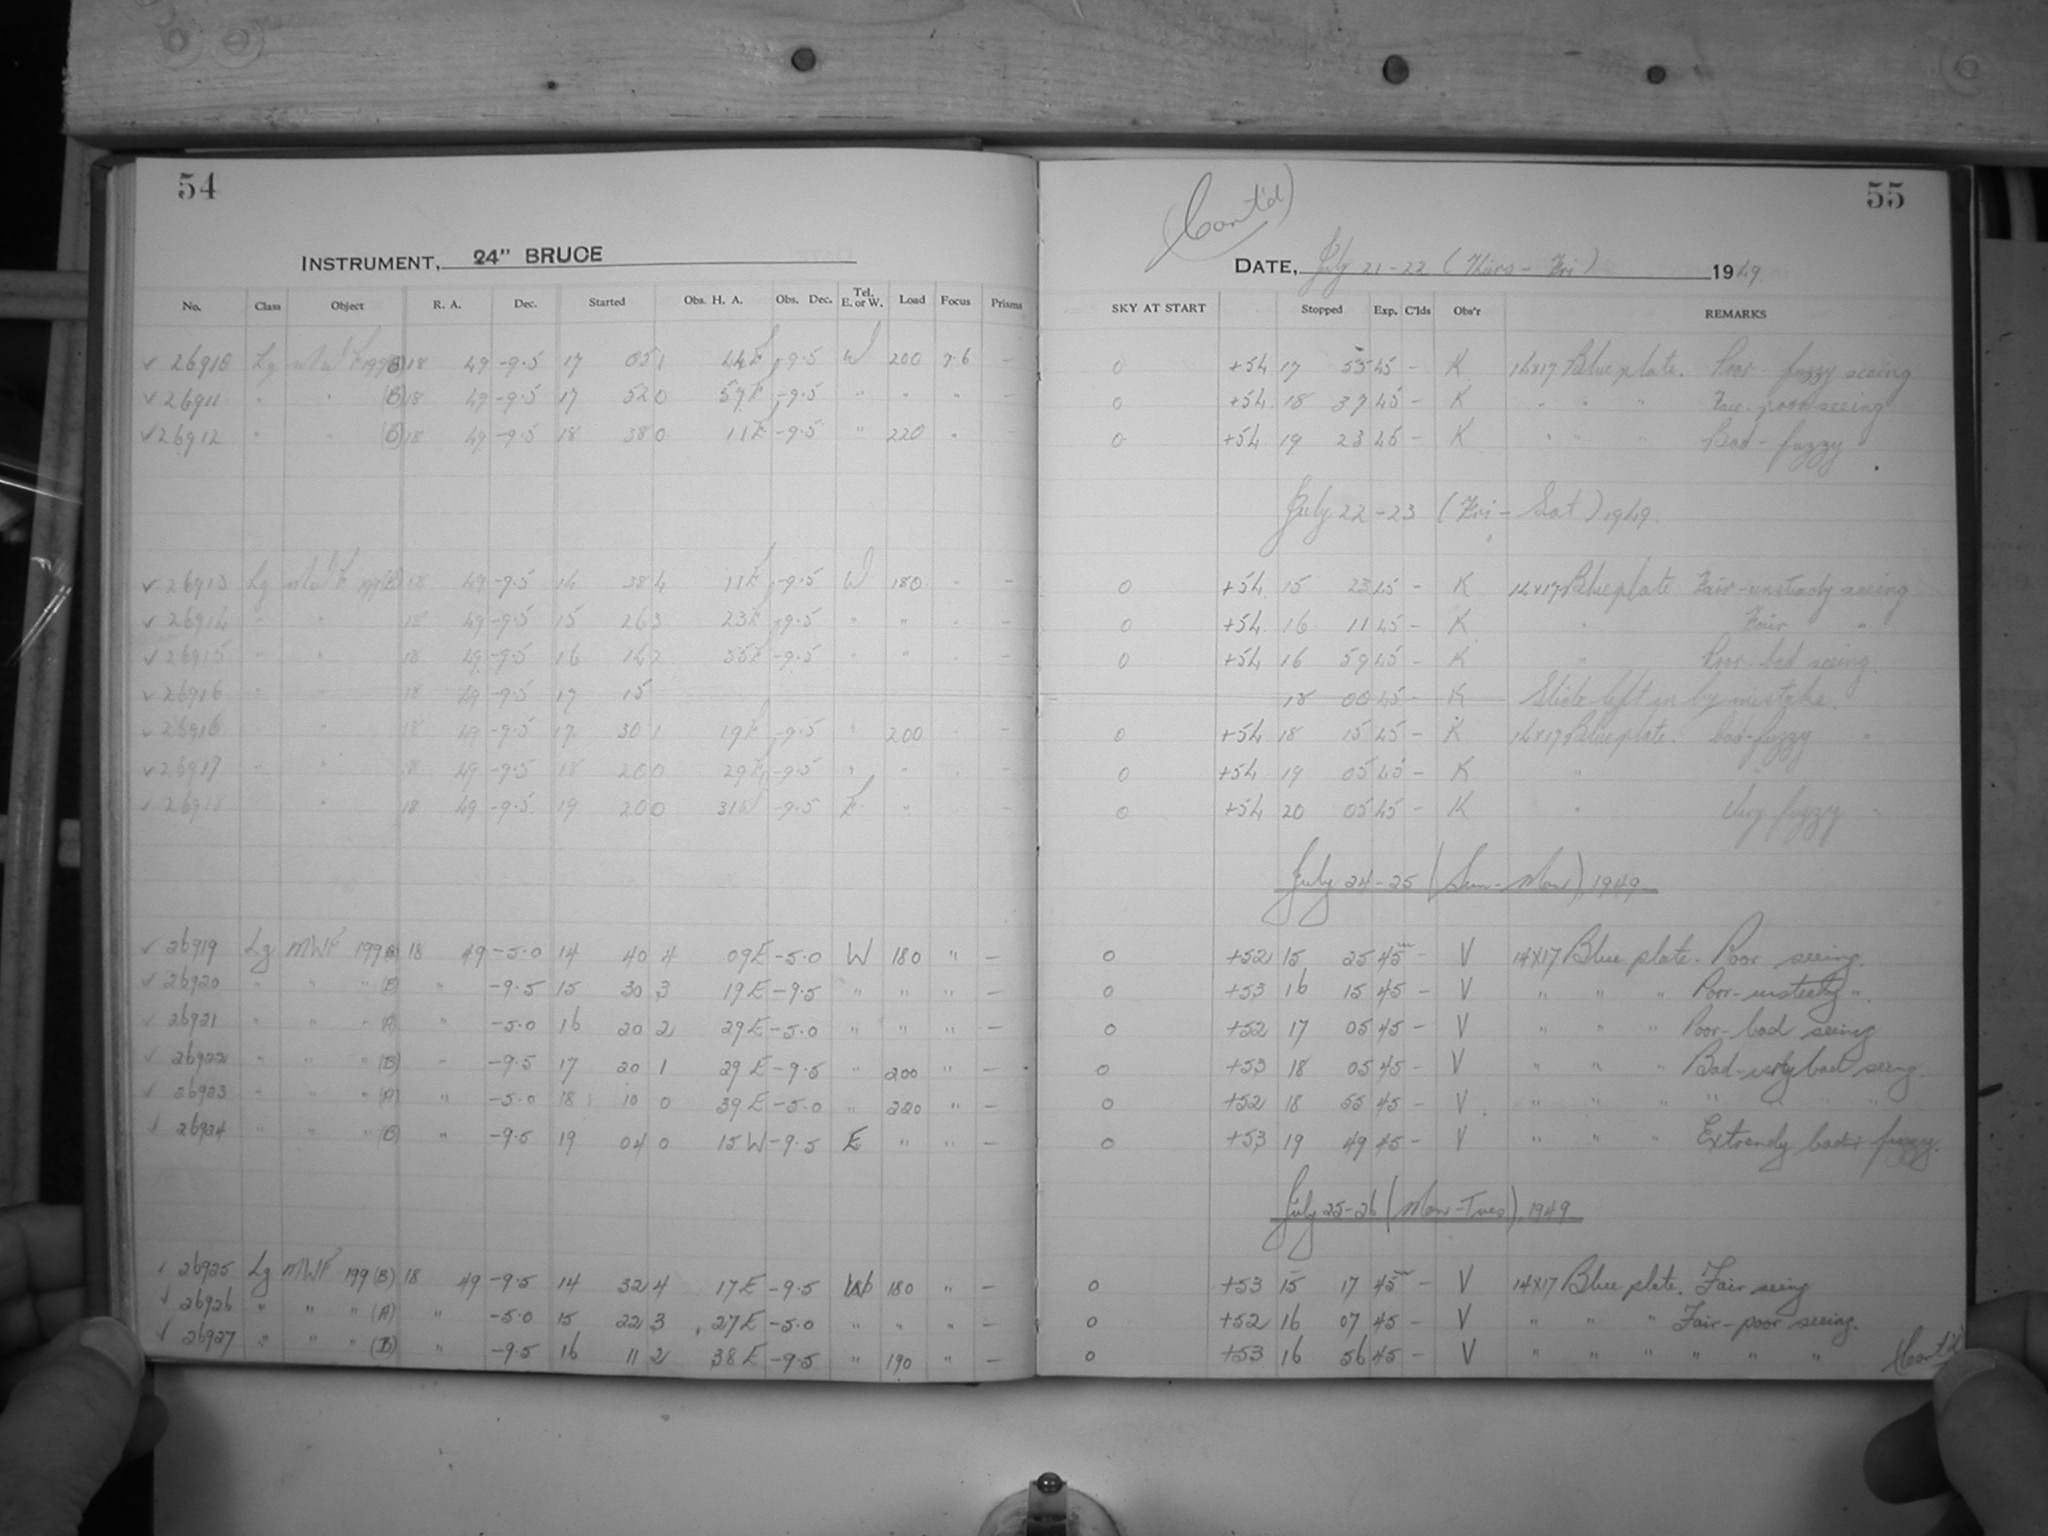 54
INSTRUMENT, 24" BRUCE
No. Class Object R. A. Dec. Started Obs. H. A. Obs. Dec. Tel. E. or W. Load Focus Prisms
✓ 26910 Lg MWF 199(B) 18 49 -9.5 17 05 1 44E -9.5 W 200 7.6 —
✓ 26911 " " (B) 18 49 -9.5 17 52 0 57E -9.5 " " " —
✓ 26912 " " (B) 18 49 -9.5 18 38 0 11E -9.5 " 220 " —
✓ 26913 Lg MWF 199(B) 18 49 -9.5 14 38 4 11E -9.5 W 180 " —
✓ 26914 " " 18 49 -9.5 15 26 3 23E -9.5 " " " —
✓ 26915 " " 18 49 -9.5 16 14 2 35E -9.5 " " " —
✓ 26916 " " 18 49 -9.5 17 15
✓ 26916 " " 18 49 -9.5 17 30 1 19E -9.5 " 200 " —
✓ 26917 " " 18 49 -9.5 18 20 0 29E -9.5 " " " —
✓ 26918 " 18 49 -9.5 19 20 0 31W -9.5 E " " —
✓ 26919 Lg MWF 199(A) 18 49 -5.0 14 40 4 09E -5.0 W 180 " —
✓ 26920 " " " (B) " -9.5 15 30 3 19E -9.5 " " " —
✓ 26921 " " " (A) " -5.0 16 20 2 29E -5.0 " " " —
✓ 26922 " " " (B) " -9.5 17 20 1 29E -9.5 " 200 " —
✓ 26923 " " " (A) " -5.0 18 10 0 39E -5.0 " 220 " —
✓ 26924 " " " (B) " -9.5 19 04 0 15W -9.5 E " " —
✓ 26925 Lg MWF 199(B) 18 49 -9.5 14 32 4 17E -9.5 W 180 " —
✓ 26926 " " " (A) " -5.0 15 22 3 27E -5.0 " " " —
✓ 26927 " " " (B) " -9.5 16 11 2 38E -9.5 " 190 " —
55
(Cont'd)
DATE, July 21-22 (Thurs - Fri) 1949
SKY AT START Stopped Exp. C'lds Obs'r REMARKS
0 +54 17 55 45 - K 14x17 Blue plate. Poor - fuzzy seeing
0 +54 18 37 45 - K " " " Fair - poor seeing
0 +54 19 23 45 - K " " " Bad - fuzzy "
July 22-23 (Fri - Sat) 1949.
0 +54 15 23 45 - K 14x17 Blue plate Fair - unsteady seeing
0 +54 16 11 45 - K " Fair "
0 +54 16 59 45 - K " Poor - bad seeing.
18 00 45 - K Slide left in by mistake.
0 +54 18 15 45 - K 14x17 Blue plate. bad - fuzzy "
0 +54 19 05 45 - K " "
0 +54 20 05 45 - K " Very fuzzy "
July 24-25 (Sun - Mon), 1949
0 +52 15 25 45m - V 14x17 Blue plate. Poor seeing.
0 +53 16 15 45 - V " " " Poor - unsteady ".
0 +52 17 05 45 - V " " " Poor - bad seeing
0 +53 18 05 45 - V " " " Bad - very bad seeing.
0 +52 18 55 45 - V " " " " " " "
0 +53 19 49 45 - V " " " Extremely bad + fuzzy.
July 25-26 (Mon - Tues), 1949
0 +53 15 17 45m - V 14x17 Blue plate. Fair seeing
0 +52 16 07 45 - V " " " Fair - poor seeing.
0 +53 16 56 45 - V " " " " " "
(Cont'd)